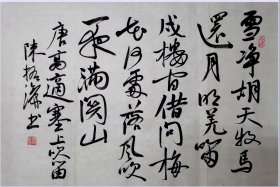 雪净胡天牧馬
還月明羌笛
戍楼間借问梅
花何處落風吹
一夜满関山
唐高適塞上笛
陳振濂书